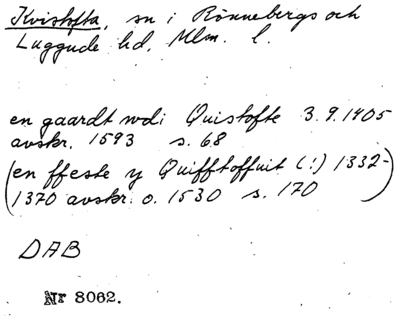 Kvistofta, sn i Rönnebergs och
Luggude hd, Mlm. l.
en gaardt wdi Quistofte 3.9.1405
avskr. 1593 s. 68
(en ffeste y Quifftoffuit (!) 1332-
1370 avskr. o. 1530 s. 170)
DAB
Nr 8062.